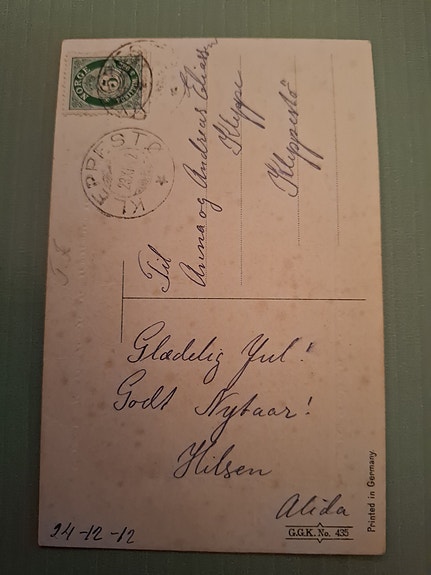 NORGE
5
KLEPPESTØ
Til
Anna og Andreas Eliassen
Kleppe
Kleppestö
Glædelig Jul!
Godt Nytaar!
Hilsen
Alida
24-12-12
G.G.K. No. 435
Printed in Germany